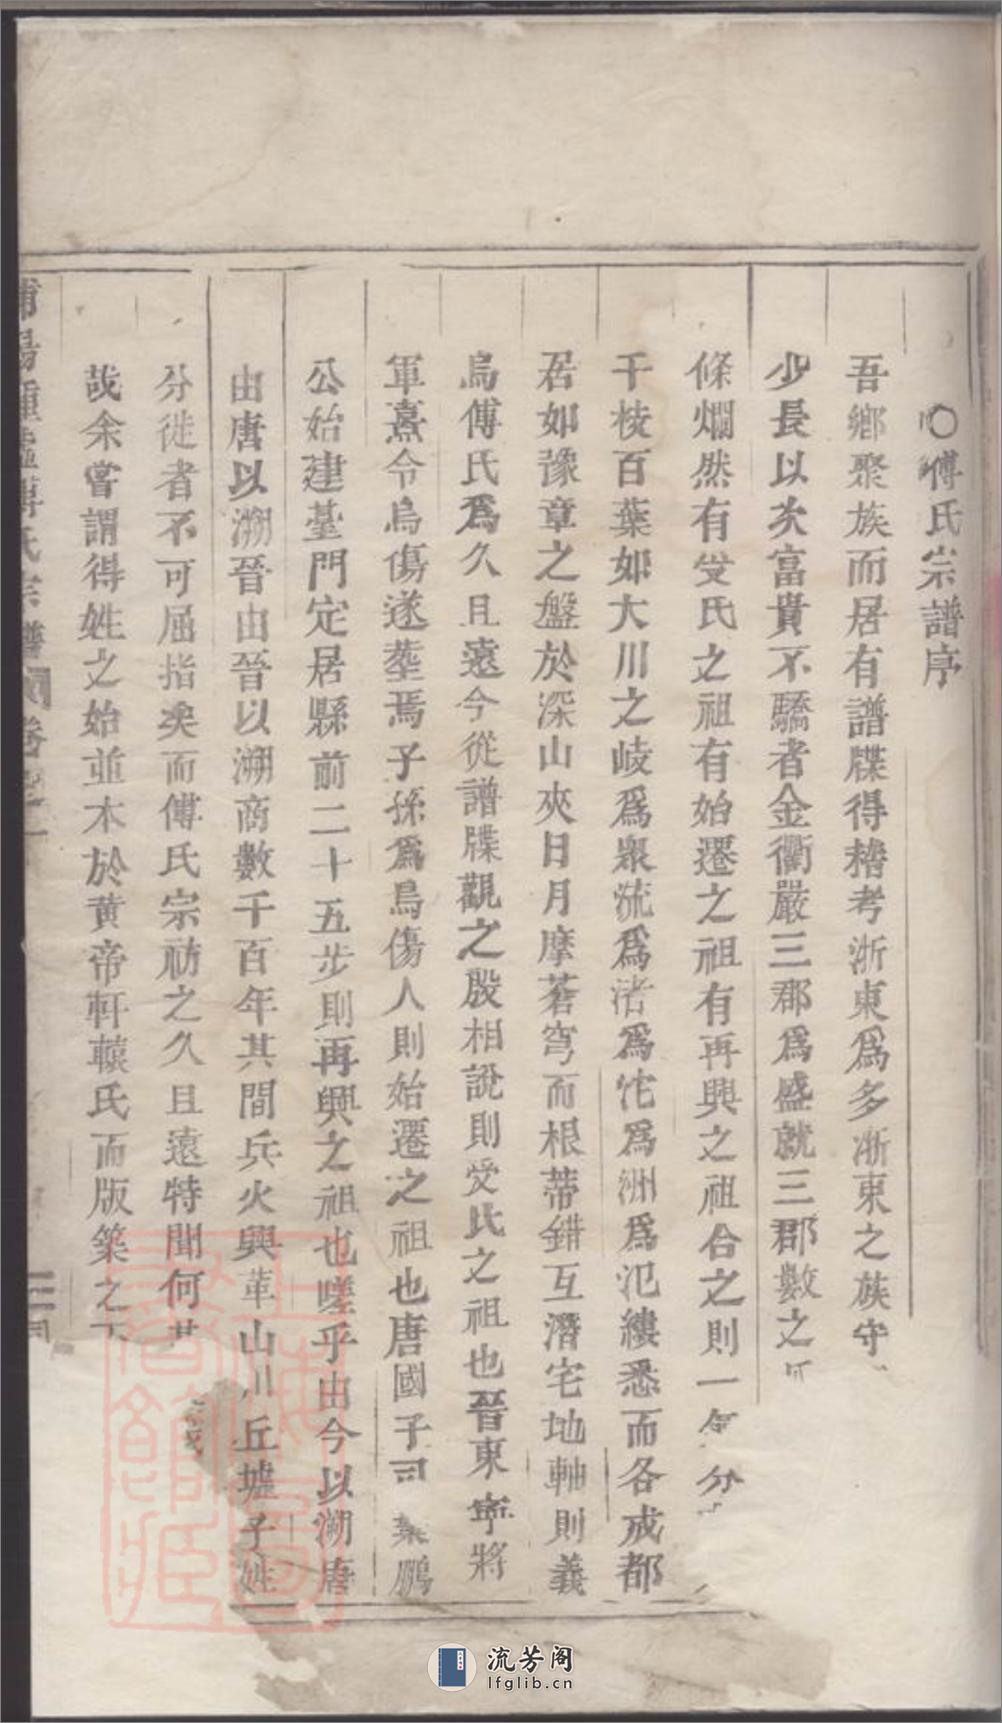 ○傅氏宗譜序
吾鄉聚族而居有譜牒得稽考浙東爲多浙東之族守
少長以次富貴不驕者金衢嚴三郡爲盛就三郡數之
條爛然有受氏之祖有始遷之祖有再興之祖合之則一 分
千枝百葉如大川之岐爲衆流爲渚爲沱爲洲爲氾縷悉而各成都
居如豫章之盤於深山夾日月摩蒼穹而根蒂錯互潛宅地軸則義
烏傅氏爲久且遠今從譜牒觀之殷相說則受氏之祖也晉東寧將
軍熹令烏傷遂塟焉子孫爲烏傷人則始遷之祖也唐國子司業鵬
公始建臺門定居縣前二十五步則再興之祖也嗟乎由今以溯唐
由唐以溯晉由晉以溯商數千百年其間兵火興革山川丘墟子姓
分徙者不可屈指矣而傅氏宗祊之久且遠特聞何其
哉余嘗謂得姓之始並本於黄帝軒轅氏而版築之
浦陽 墟傅氏宗譜 卷之一
上海圖書館藏
流芳阁
lfglib.cn